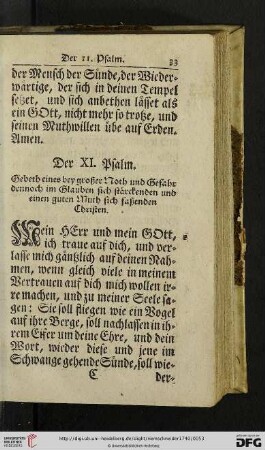 Der 11. Psalm. 33
der Mensch der Sünde, der Wieder-
wärtige, der sich in deinen Tempel
setzet, und sich anbethen lässet als
ein GOtt, nicht mehr so trotze, und
seinen Muthwillen übe auf Erden.
Amen.
Der XI. Psalm.
Gebeth eines bey grosser Noth und Gefahr
dennoch im Glauben sich stärckenden und
einen guten Muth sich fassenden
Christen.
Mein HErr und mein GOtt,
ich traue auf dich, und ver-
lasse mich gäntzlich auf deinen Nah-
men, wenn gleich viele in meinem
Vertrauen auf dich mich wollen ir-
re machen, und zu meiner Seele sa-
gen: Sie soll fliegen wie ein Vogel
auf ihre Berge, soll nachlassen in ih-
rem Eifer um deine Ehre, und dein
Wort, wieder diese und jene im
Schwange gehende Sünde, soll wie-
C der-
UNIVERSITÄTS-
BIBLIOTHEK
HEIDELBERG
Gefördert durch die
DFG